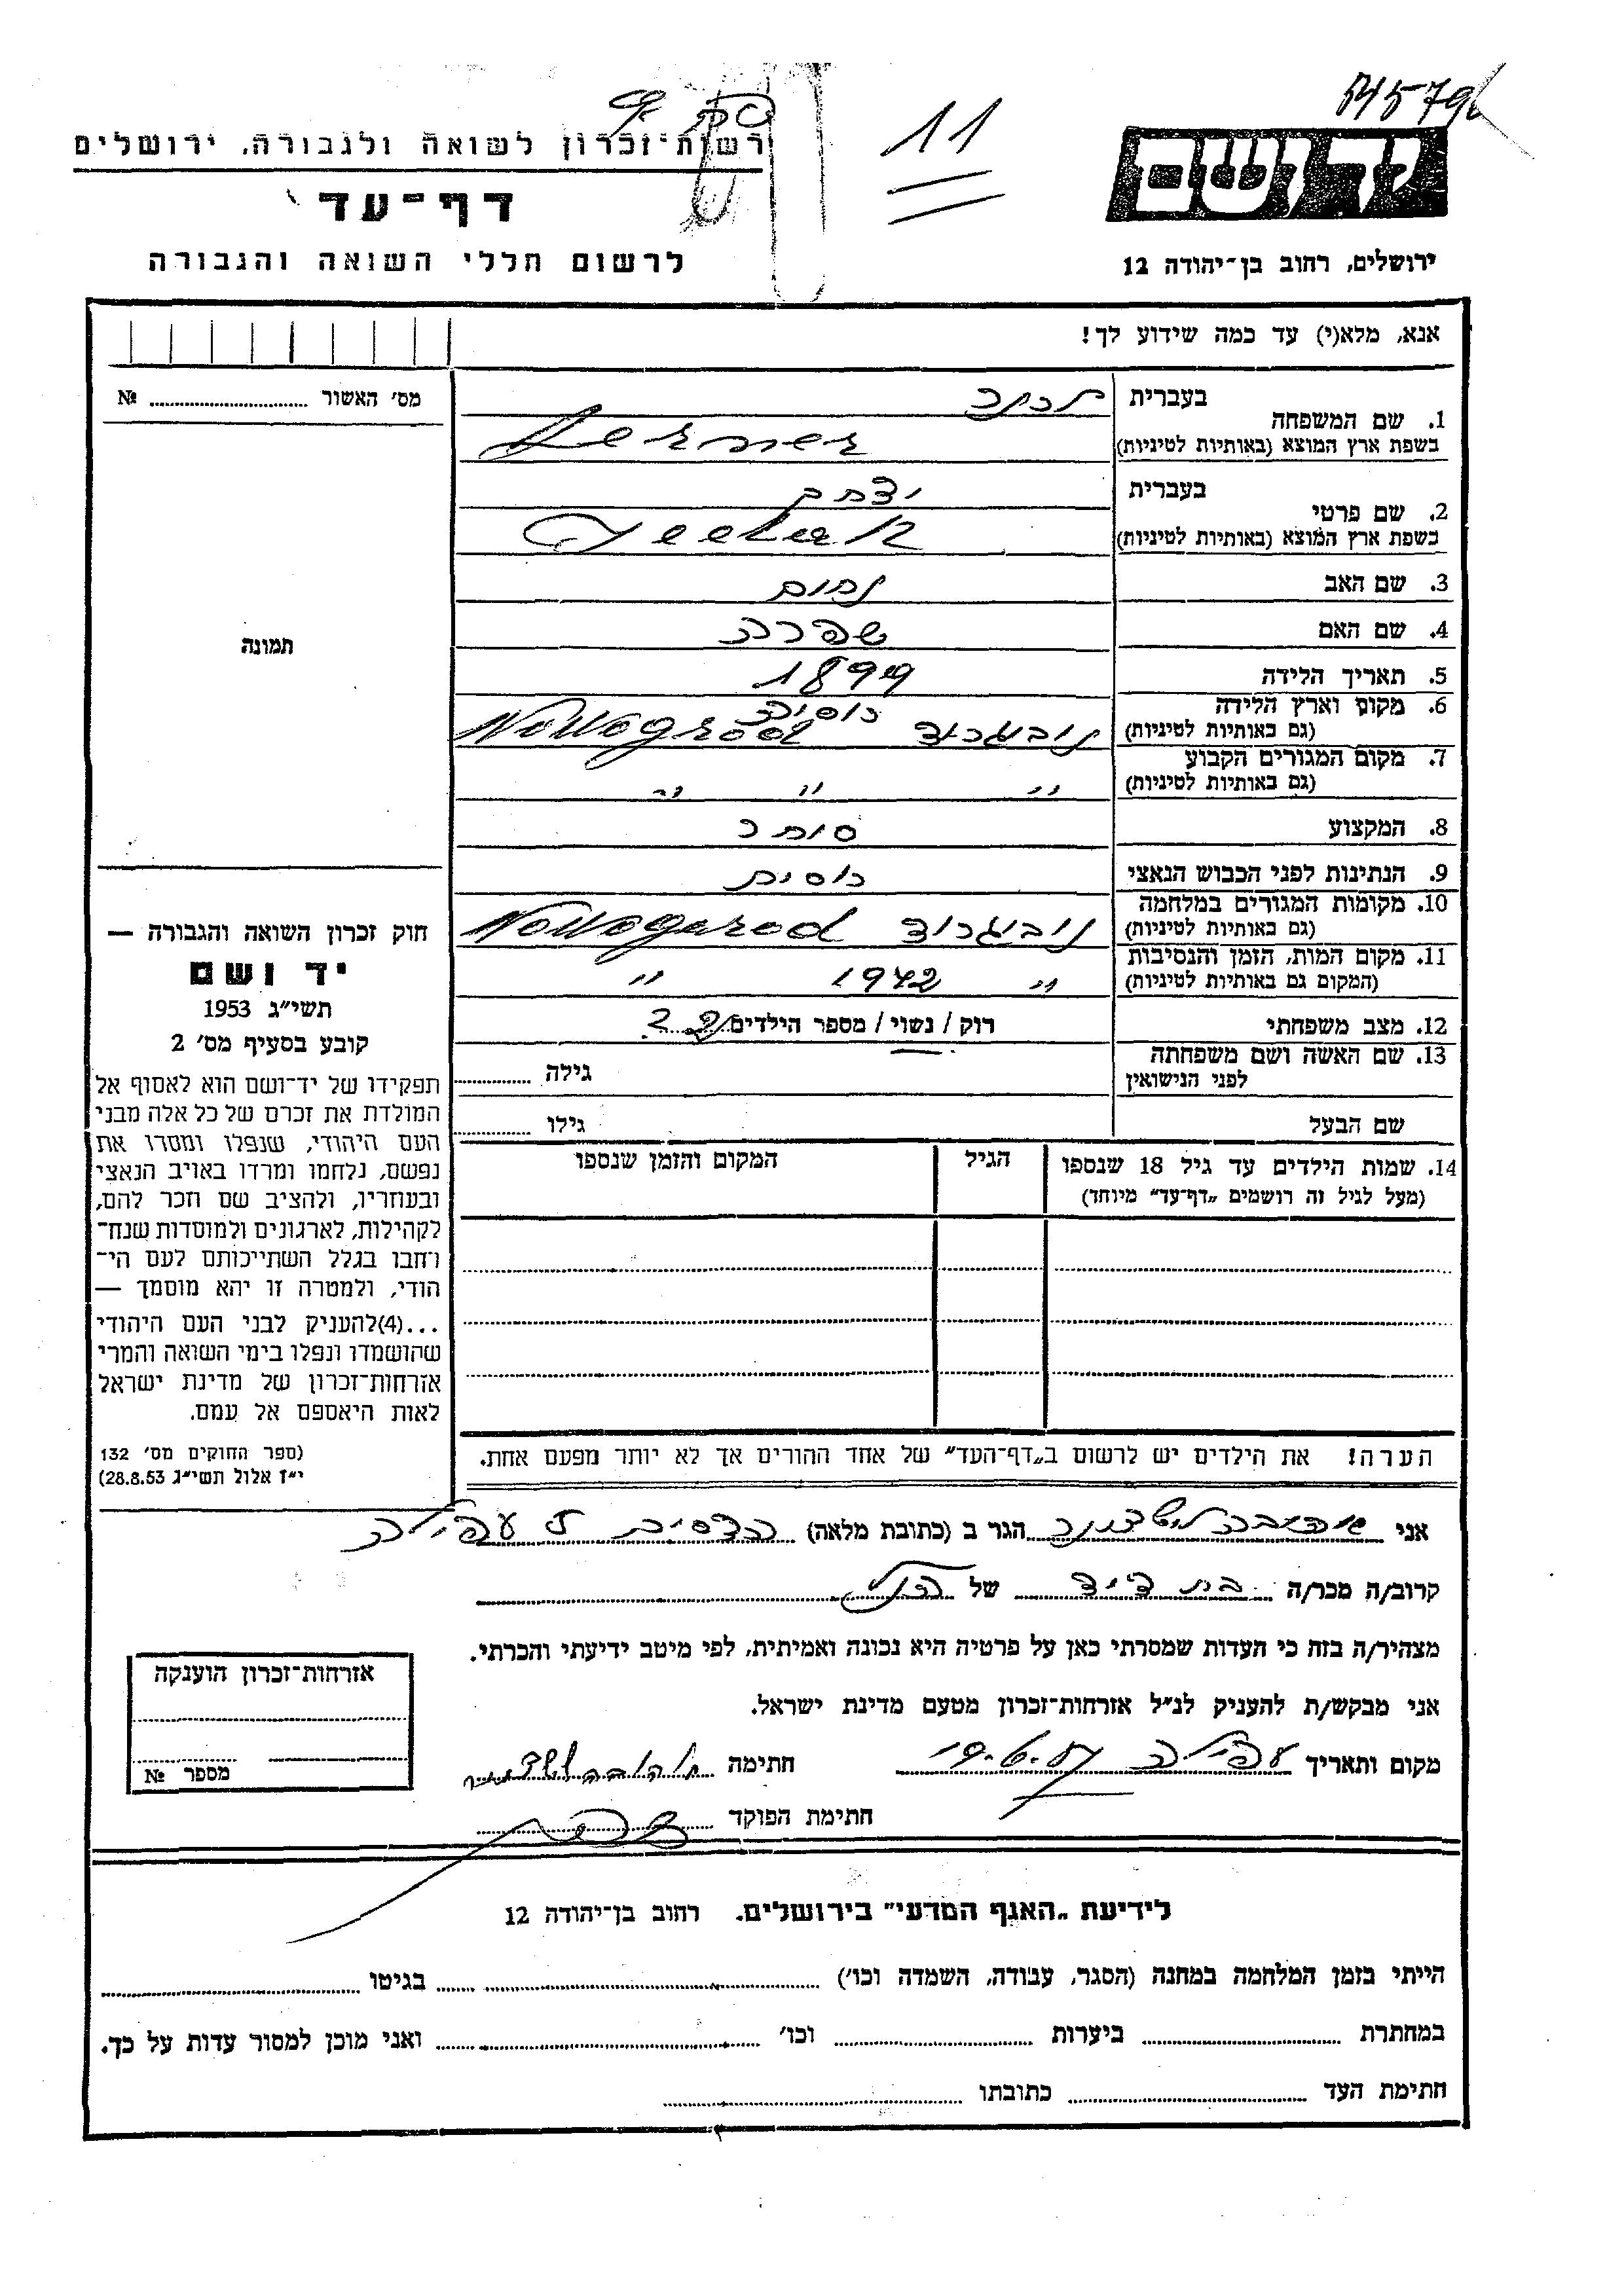 11
רשות־זכרון לשואה ולגבורה, ירושלים
דף־עד
לרשום חללי השואה והגבורה
יד ושם
ירושלים, רחוב בן־יהודה 12
אנא, מלא(י) עד כמה שידוע לך!
מס׳ האשור № 
תמונה
1. שם המשפחה
בעברית לרנר
בשפת ארץ המוצא (באותיות לטיניות) Lerner
2. שם פרטי
בעברית יצחק
בשפת ארץ המוצא (באותיות לטיניות)
3. שם האב נחום
4. שם האם שפרה
5. תאריך הלידה 1899
6. מקום וארץ הלידה רוסיה
(גם באותיות לטיניות) נובוגרוד Nowogrod
7. מקום המגורים הקבוע
(גם באותיות לטיניות) " " "
8. המקצוע סוחר
9. הנתינות לפני הכבוש הנאצי רוסית
10. מקומות המגורים במלחמה
(גם באותיות לטיניות) נובוגרוד Nowogarod
11. מקום המות, הזמן והנסיבות
(המקום גם באותיות לטיניות) " 1942 "
12. מצב משפחתי רוק / נשוי / מספר הילדים 2
13. שם האשה ושם משפחתה
לפני הנישואין גילה
שם הבעל גילו
14. שמות הילדים עד גיל 18 שנספו
(מעל לגיל זה רושמים „דף־עד" מיוחד)
הגיל
המקום והזמן שנספו
הערה! את הילדים יש לרשום ב„דף־העד" של אחד ההורים אך לא יותר מפעם אחת.
חוק זכרון השואה והגבורה —
יד ושם
תשי״ג 1953
קובע בסעיף מס׳ 2
תפקידו של יד־ושם הוא לאסוף אל
המולדת את זכרם של כל אלה מבני
העם היהודי, שנפלו ומסרו את
נפשם, נלחמו ומרדו באויב הנאצי
ובעוזריו, ולהציב שם וזכר להם,
לקהילות, לארגונים ולמוסדות שנח־
רחבו בגלל השתייכותם לעם הי־
הודי, ולמטרה זו יהא מוסמך —
...(4)להעניק לבני העם היהודי
שהושמדו ונפלו בימי השואה והמרי
אזרחות־זכרון של מדינת ישראל
לאות היאספם אל עמם.
(ספר החוקים מס׳ 132
י״ז אלול תשי״ג 28.8.53)
אני הגר ב (כתובת מלאה) עפולה
קרוב/ה מכר/ה בת דוד של הנ״ל
מצהיר/ה בזה כי העדות שמסרתי כאן על פרטיה היא נכונה ואמיתית, לפי מיטב ידיעתי והכרתי.
אני מבקש/ת להעניק לנ״ל אזרחות־זכרון מטעם מדינת ישראל.
מקום ותאריך עפולה חתימה
חתימת הפוקד
אזרחות־זכרון הוענקה
מספר №
לידיעת „האגף המדעי" בירושלים. רחוב בן־יהודה 12
הייתי בזמן המלחמה במחנה (הסגר, עבודה, השמדה וכו׳) בגיטו
במחתרת ביערות וכו׳ ואני מוכן למסור עדות על כך.
חתימת העד כתובתו